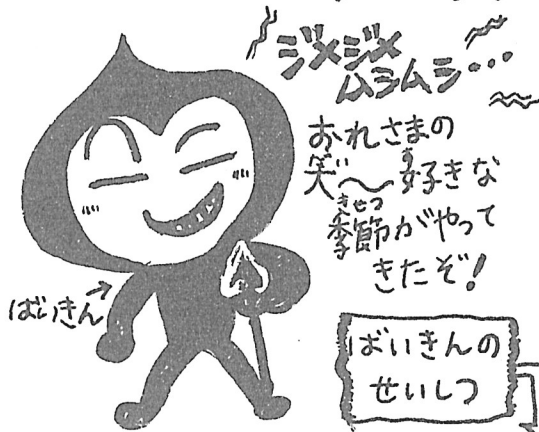 ジメジメ
ムシムシ・・・
おれさまの
だい す
大〜好きな
きせつ
季節がやって
きたぞ！
ばいきん
ばいきんの
せいしつ